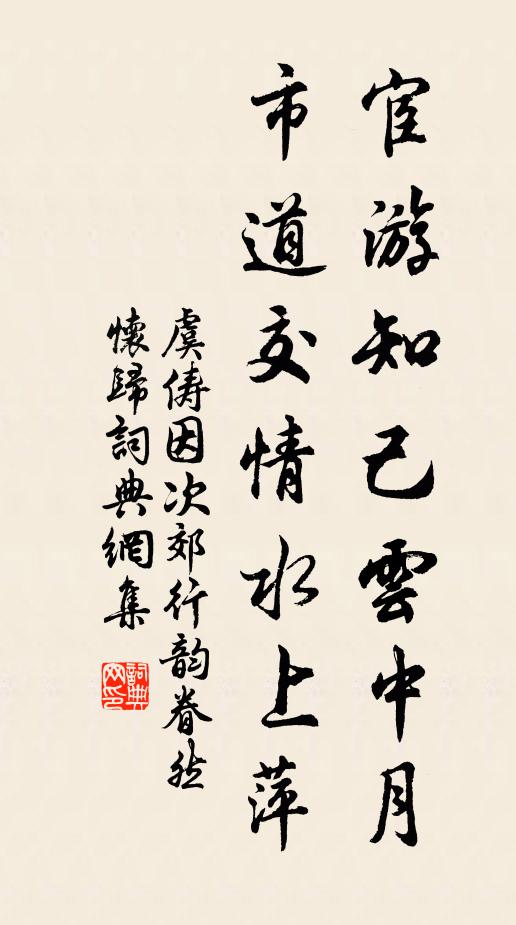 宦游知己雲中月
市道交情水上萍
虞俦因次郊行韵眷然
懷歸詞典網集
詞典網印